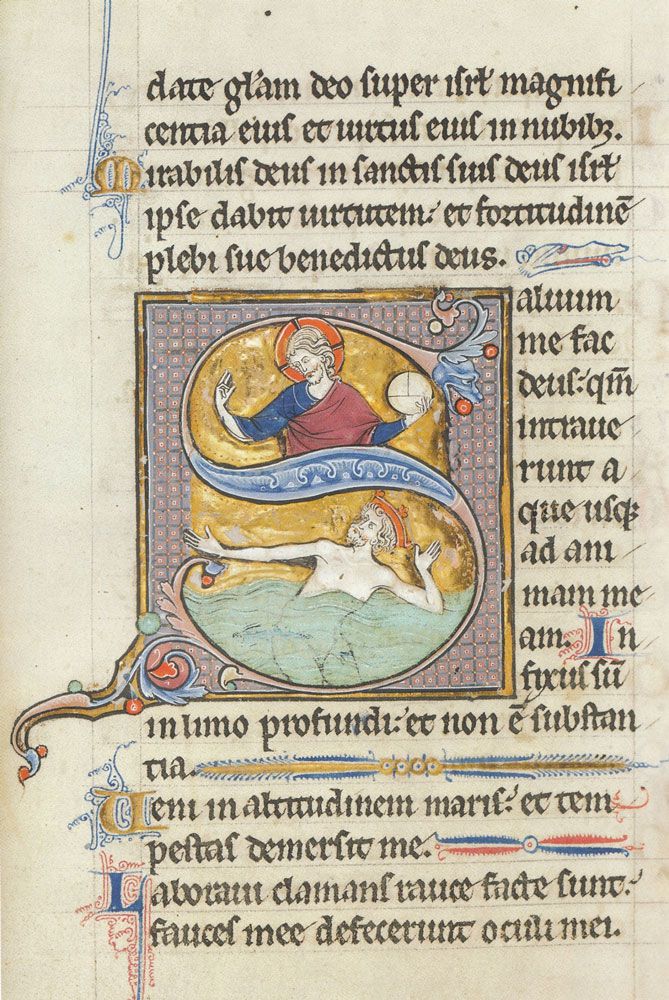 date gl̃am deo super isrł magnifi
centia eius et uirtus eius in nubibꝫ.
Mirabilis deus in sanctis suis deus isrł
ipse dabit uirtutem: et fortitudinē
plebi sue benedictus deus.
Saluum
me fac
deus: qm̄
intraue
runt a
que usqꝫ
ad ani
mam me
am. In
fixus sū
in limo profundi: et non ē substan
tia.
Ueni in altitudinem maris: et tem
pestas demersit me.
Laboraui clamans rauce facte sunt:
fauces mee defecerunt oculi mei.